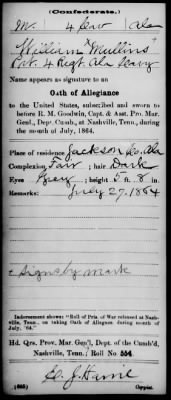 (Confederate.)
M. 4 Cav Ala
William x Mullins
Pvt. 4 Regt. Ala Cavy
Name appears as signature to an
Oath of Allegiance
to the United States, subscribed and sworn to
before R. M. Goodwin, Capt. & Asst. Pro. Mar.
Genl., Dep't. Cumb., at Nashville, Tenn., during
the month of July, 1864.
Place of residence Jackson Co. Ala
Complexion Fair; hair Dark
Eyes Gray; height 5 ft. 8 in.
Remarks: July 27. 1864
x Signs by mark
Indorsement shows: "Roll of Pris. of War released at Nashville, Tenn., on taking Oath of Allegiance during month of
July, '64."
Hd. Qrs. Provo. Mar. Gen'l, Dept. of the Cumb'd,
Nashville, Tenn.; Roll No. 554.
Copyist.